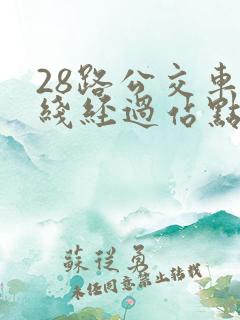 28路公交車
綫經過佔點
蘇從勇
未任同意禁止轉載